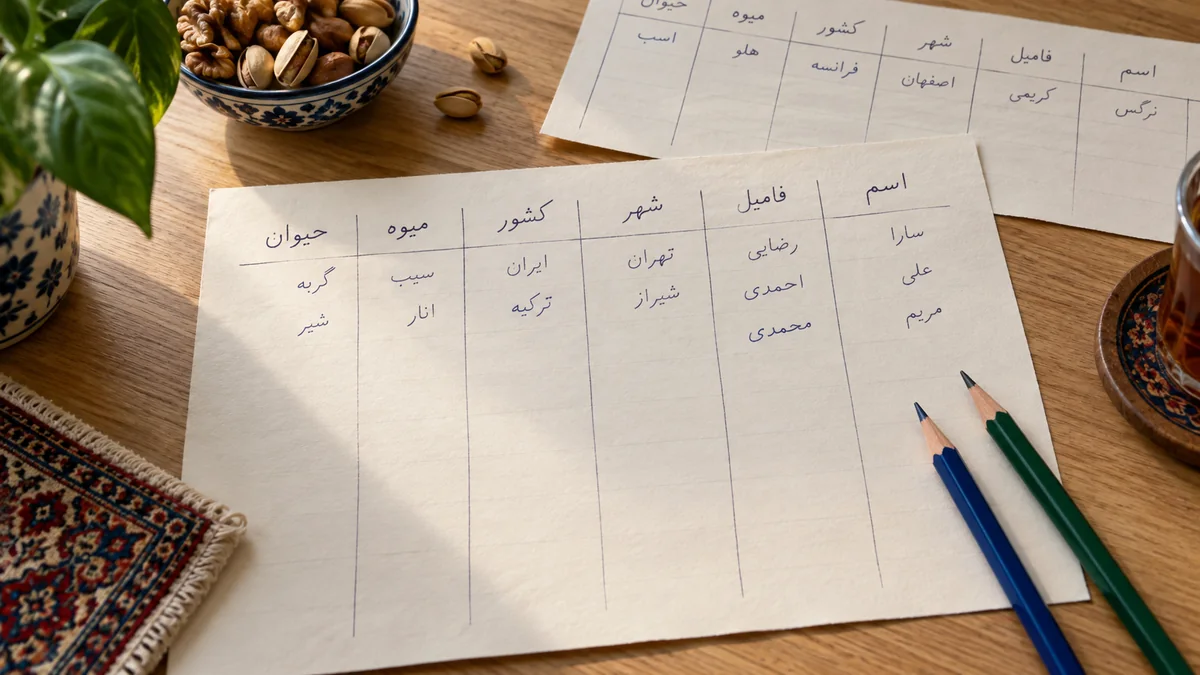 اسم فامیل شهر کشور میوه حیوان
نرگس کریمی اصفهان فرانسه هلو اسب
اسم فامیل شهر کشور میوه حیوان
سارا رضایی تهران ایران سیب گربه
علی احمدی شیراز ترکیه انار شیر
مریم محمدی